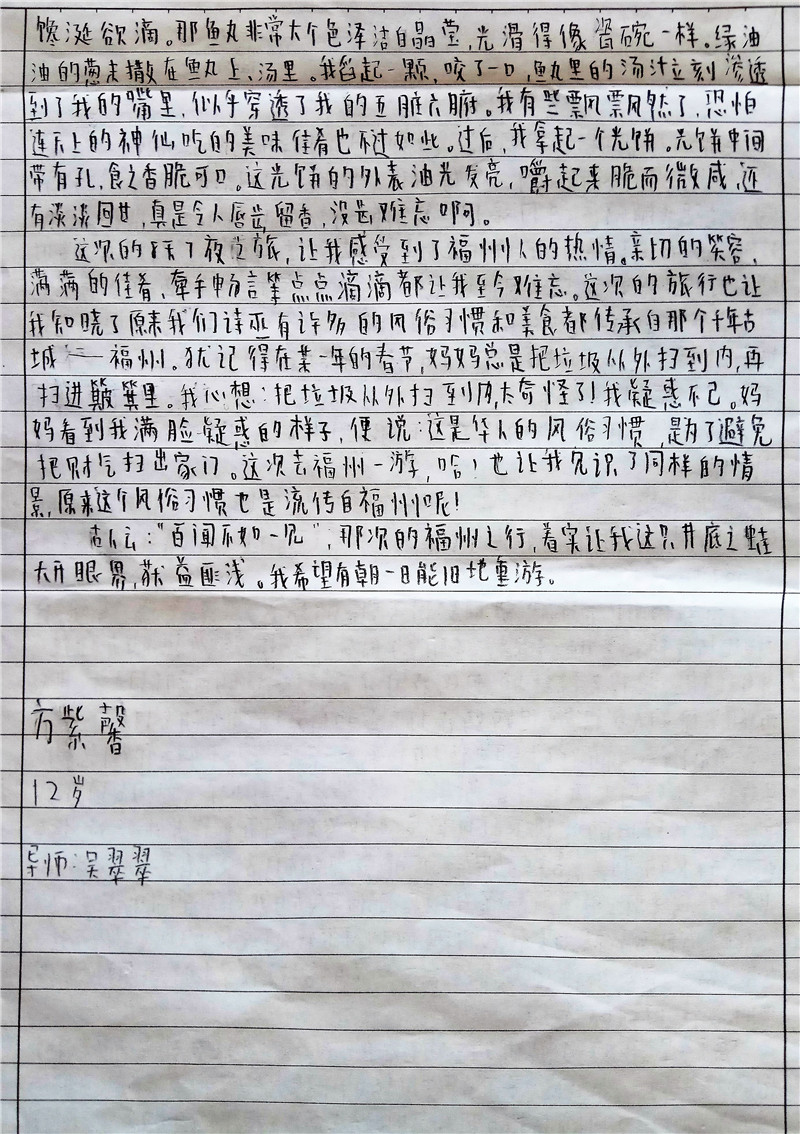 馋涎欲滴。那鱼丸非常大个色泽洁白晶莹，光滑得像瓷碗一样。绿油
油的葱末撒在鱼丸上、汤里。我舀起一颗，咬了一口，鱼丸里的汤汁立刻渗透
到了我的嘴里，似乎穿透了我的五脏六腑。我有些飘飘然了，恐怕
连天上的神仙吃的美味佳肴也不过如此。过后，我拿起一个光饼。光饼中间
带有孔，食之香脆可口。这光饼的外表油光发亮，嚼起来脆而微咸，还
有淡淡回甘，真是令人唇齿留香，没齿难忘啊。
这次的8天7夜之旅，让我感受到了福州人的热情。亲切的笑容、
满满的佳肴、牵手畅言等点点滴滴都让我至今难忘。这次的旅行也让
我知晓了原来我们诗巫有许多的风俗习惯和美食都传承自那个千年古
城——福州。犹记得在某一年的春节，妈妈总是把垃圾从外扫到内，再
扫进簸箕里。我心想：把垃圾从外扫到内，太奇怪了！我疑惑不已。妈
妈看到我满脸疑惑的样子，便说：这是华人的风俗习惯，是为了避免
把财气扫出家门。这次去福州一游，哈！也让我见识了同样的情
景，原来这个风俗习惯也是流传自福州呢！
古人云：“百闻不如一见”，那次的福州之行，着实让我这只井底之蛙
大开眼界，获益匪浅。我希望有朝一日能旧地重游。
方紫馨
12岁
导师：吴翠翠